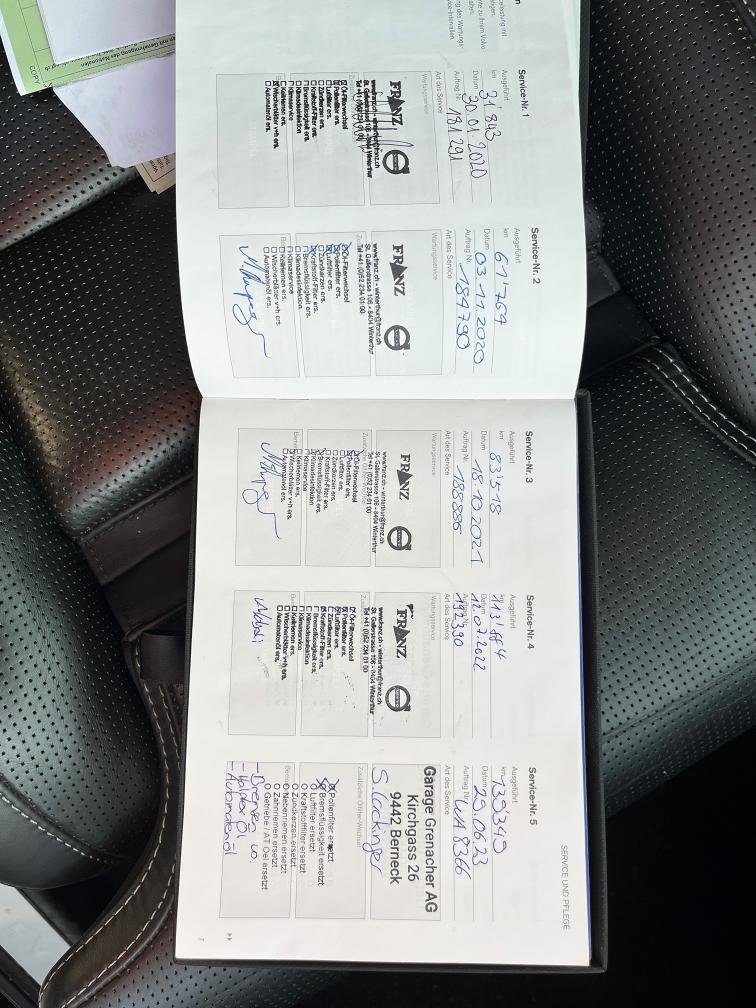 SERVICE UND PFLEGE
Service-Nr. 1
Ausgeführt
km 31'843
Datum 30.01.2020
Auftrag Nr. 181 291
Art des Service
Wartungsservice
FRANZ
St. Gallerstrasse 106 - 8404 Winterthur
Tel +41 (0)52 234 01 00
Öl-Filterwechsel
Pollenfilter ers.
Luftfilter ers.
Zündkerzen ers.
Kraftstoff-Filter ers.
Bremsflüssigkeit ers.
Klimadesinfektion
Klimaservice
Keilriemen ers.
Wischerblätter v+h ers.
Automatenöl ers.
Service-Nr. 2
Ausgeführt
km 61'769
Datum 03.11.2020
Auftrag Nr. 184790
Art des Service
Wartungsservice
FRANZ
www.franz.ch - winterthur@franz.ch
St. Gallerstrasse 106 - 8404 Winterthur
Tel +41 (0)52 234 01 00
Öl-Filterwechsel
Pollenfilter ers.
Luftfilter ers.
Zündkerzen ers.
Kraftstoff-Filter ers.
Bremsflüssigkeit ers.
Klimadesinfektion
Klimaservice
Keilriemen ers.
Wischerblätter v+h ers.
Automatenöl ers.
Service-Nr. 3
Ausgeführt
km 83'518
Datum 18.10.2021
Auftrag Nr. 188885
Art des Service
Wartungsservice
FRANZ
www.franz.ch - winterthur@franz.ch
St. Gallerstrasse 106 - 8404 Winterthur
Tel +41 (0)52 234 01 00
Öl-Filterwechsel
Pollenfilter ers.
Luftfilter ers.
Zündkerzen ers.
Kraftstoff-Filter ers.
Bremsflüssigkeit ers.
Klimadesinfektion
Klimaservice
Keilriemen ers.
Wischerblätter v+h ers.
Automatenöl ers.
Service-Nr. 4
Ausgeführt
km
Datum 12.07.2022
Auftrag Nr. 192390
Art des Service
Wartungsservice
FRANZ
www.franz.ch - winterthur@franz.ch
St. Gallerstrasse 106 - 8404 Winterthur
Tel +41 (0)52 234 01 00
Öl-Filterwechsel
Pollenfilter ers.
Luftfilter ers.
Zündkerzen ers.
Kraftstoff-Filter ers.
Bremsflüssigkeit ers.
Klimadesinfektion
Klimaservice
Keilriemen ers.
Wischerblätter v+h ers.
Automatenöl ers.
Service-Nr. 5
Ausgeführt
km 135349
Datum 29.06.23
Auftrag Nr. WA8366
Art des Service
Garage Grenacher AG
Kirchgass 26
9442 Berneck
Zusätzliche Ölfilter-Wechsel
Pollenfilter ersetzt
Bremsflüssigkeit ersetzt
Luftfilter ersetzt
Kraftstofffilter ersetzt
Zündkerzen ersetzt
Nebenriemen ersetzt
Zahnriemen ersetzt
Getriebe / AT Oel ersetzt
- Haldex Öl
- Automatenöl
7
COPY